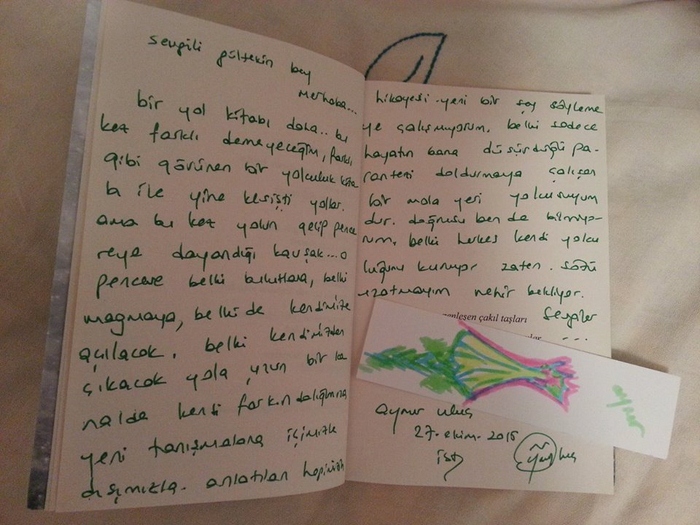 sevgili gültekin bey
merhaba...
bir yol kitabı daha.. bu
kez farklı demeyeceğim, farklı
gibi görünen bir yolculuk kita
b ile yine kesişti yollar.
ama bu kez yolun gelip pence
reye dayandığı kavşak...o
pencere belki bulutlara, belki
magmaya, belki de kendimize
açılacak. belki kendimizden
çıkacak yola uzun bir ka
nalda kendi farkındalığımıza
yeni tanışmalara içimizle
dışımızla. anlatılan hepimizin
hikayesi. yeni bir şey söyleme
ye çalışmıyorum, belki sadece
hayatın bana düşürdüğü pa-
rantezi doldurmaya çalışan
bir mola yeri yolcusuyum
dur. doğrusu ben de bilmiyo-
rum, belki herkes kendi yolcu
luğunu kuruyor zaten. sözü
uzatmayım nehir bekliyor.
sevgiler
...
enleşen çakıl taşları
aynur uluç
27.ekim.2015
ist
aynur